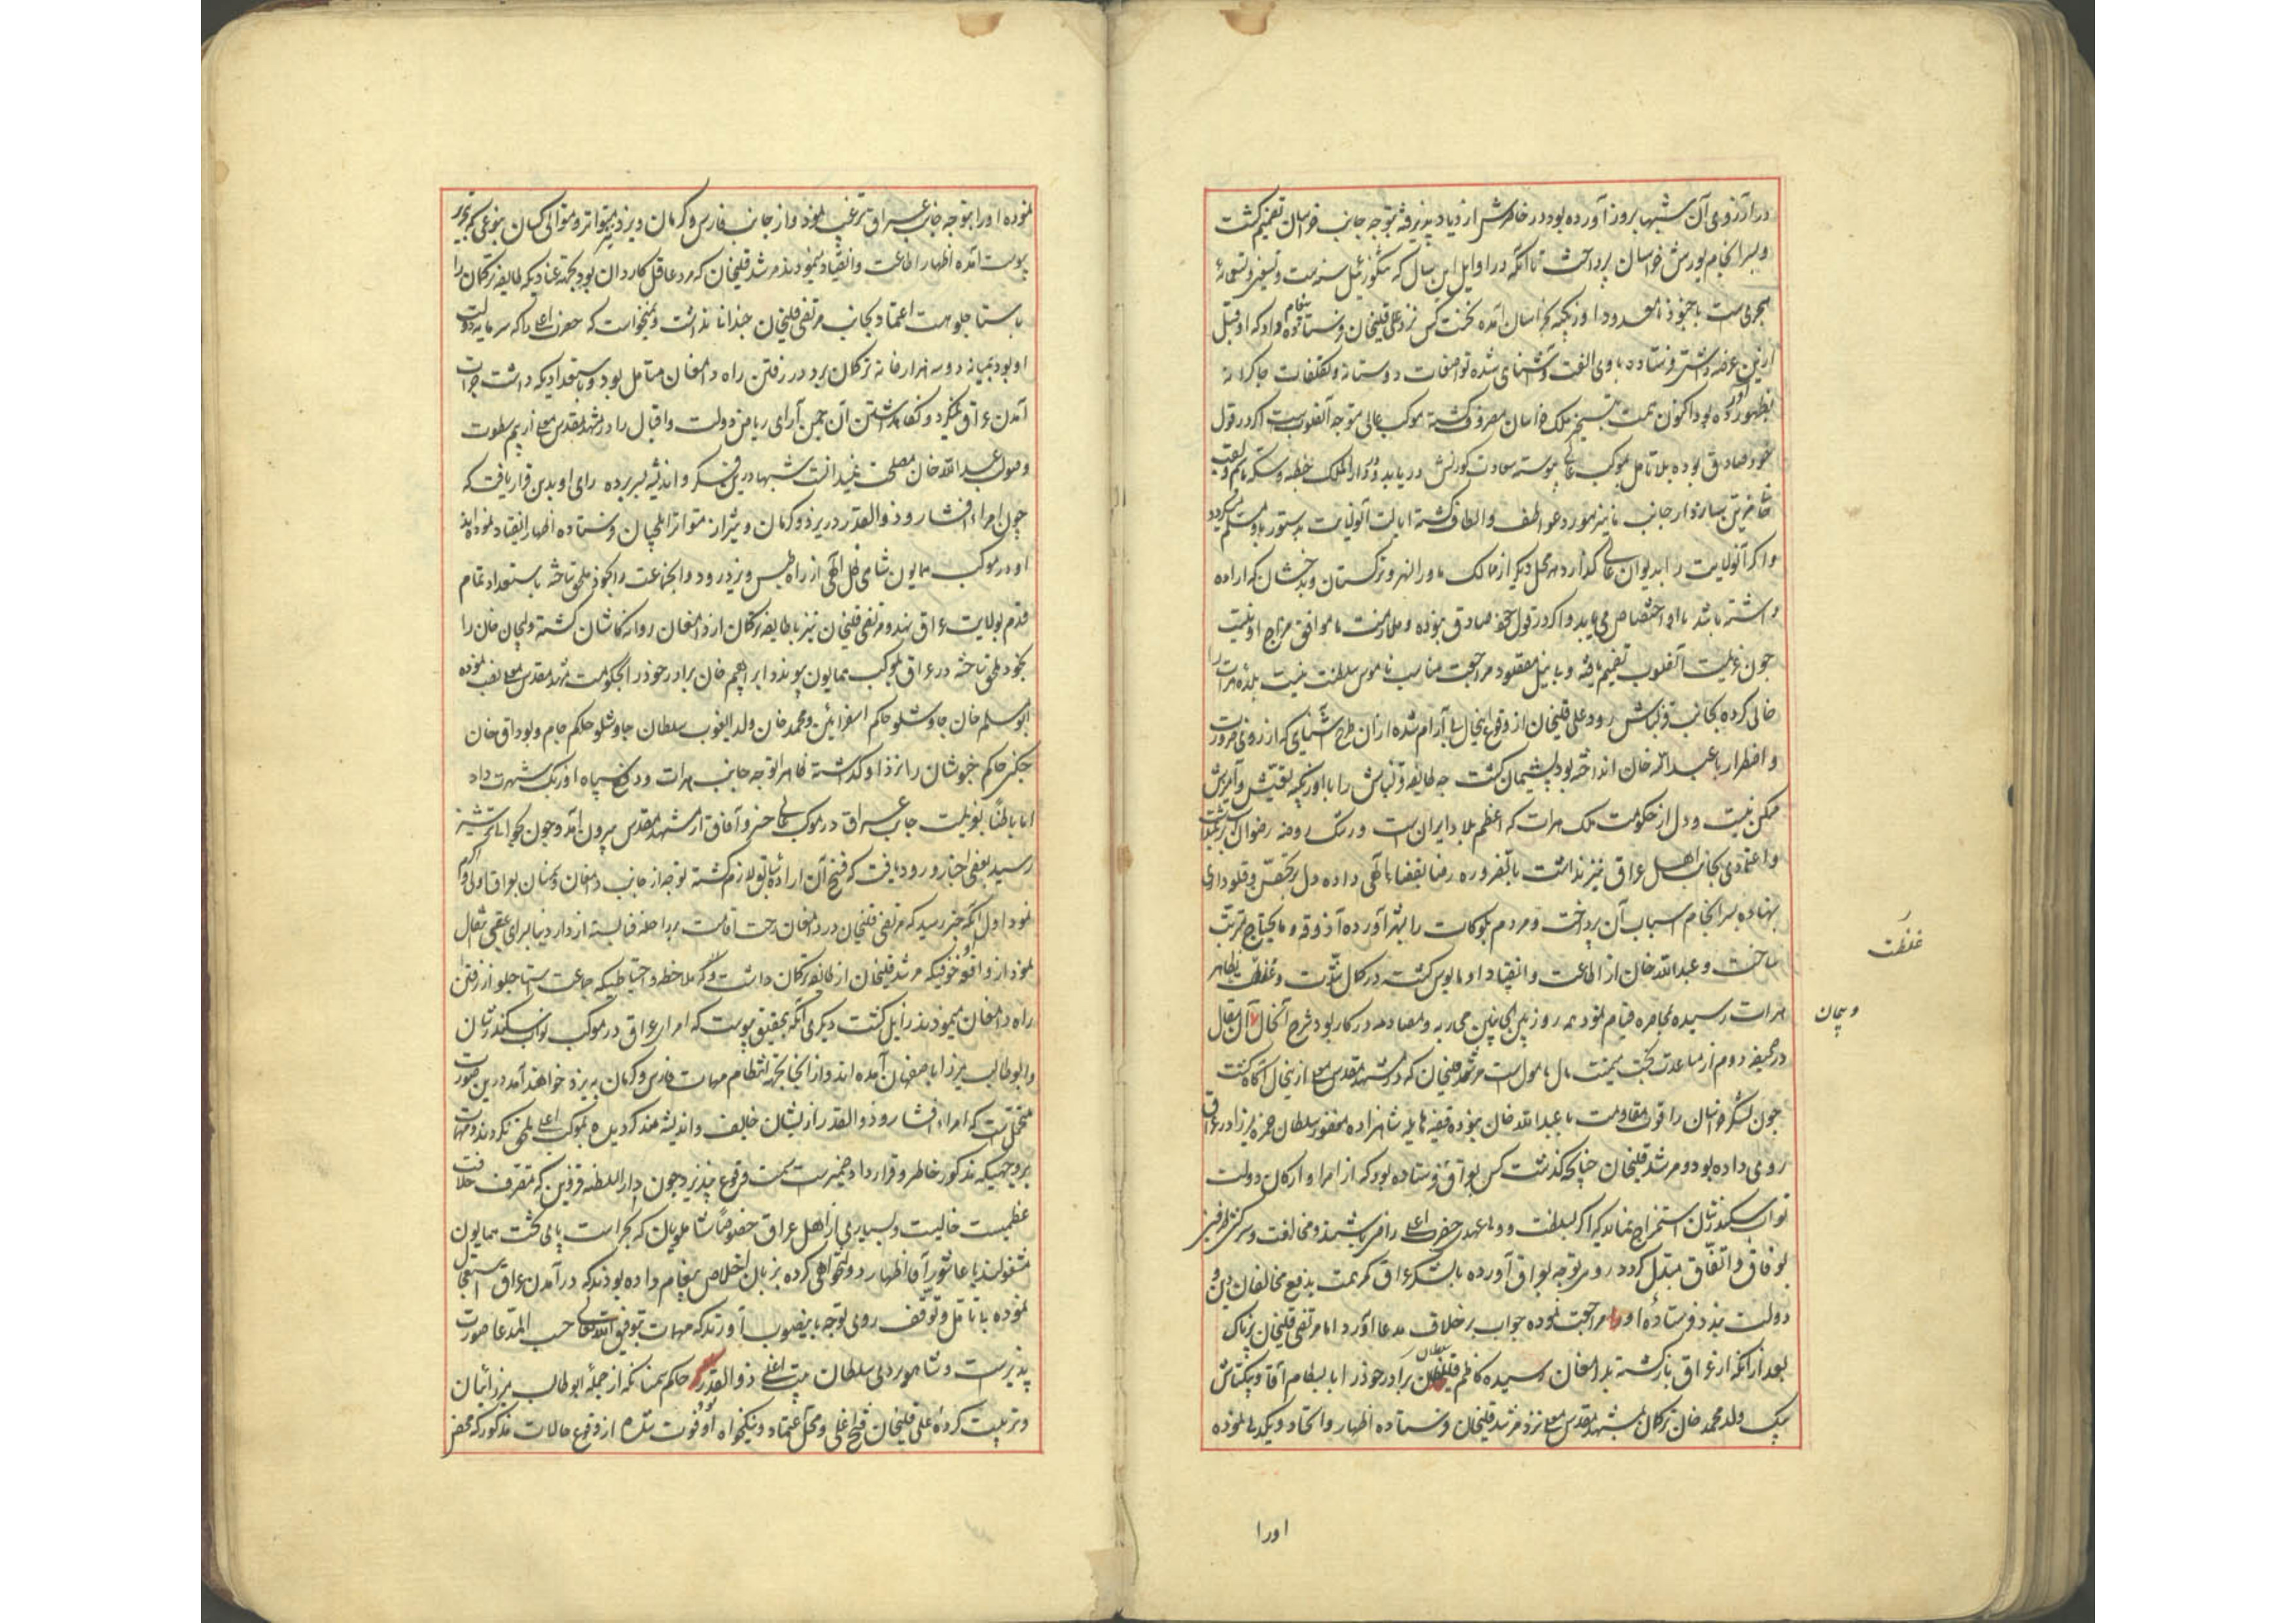 در آرزوی آن شبها بروز آورده بود در خاطرش ازدیاد پذیرفته بتوجه جانب خراسان تصمیم گشت
و بسرانجام یورش خراسان پرداخت تا آنکه در اوایل این سال که تنگوزئیل سنه ست و تسعین و تسعمائه
هجری است با جنود نامعدود اوزبکیه بخراسان آمده نخست کس نزد علی قلیخان فرستاده پیغام داد که او قبل
ازین عرضه داشتی فرستاده با وی الفت و آشنای شده تواضعات دوستانه و تکلفات چاکرانه
بظهور آورده بود اکنون همت بتسخیر ملک خراسان مصروف گشته موکب عالی متوجه آنصوب است اگر در قول
خود صادق بوده بلا تامل بموکب عالی پیوسته سعادت کورنش دریابد و در دارالملک خطبه و سکه بنام و لقب
خاقانی سازد از جانب ما نیز مورد عواطف و الطاف گشته ایالت آنولایت بدستور باو مسلم گردد
و اگر آنولایت را بدیوان عالی گذارد هر محل دیگر از ممالک ماوراالنهر و ترکستان و بدخشان که اراده
داشته باشد باو اختصاص می یابد و اگر در قول خود صادق نبوده و ملازمت ما موافق مزاج او نیست
چون عزیمت آنصوب تصمیم یافته و بی نیل مقصود مراجعت مناسب ناموس سلطنت نیست بلده هرات را
خالی کرده بجانب قزلباش رود علی قلیخان از وقوع اینحال بی آرام شده از آن طرح آشنای که از روی ضرورت
و اضطرار با عبدالله خان انداخته بود پشیمان گشت چه طایفه قزلباش را با اوزبکیه بقیتش و آمیزش
ممکن نیست و دل از حکومت ملک هرات که اعظم بلاد ایران است و رشک روضه رضوان
و اعتمادی بجانب اهل عراق نیز نداشت بالضروره رضا بقضاء الهی داده دل بر تحصن و قلعه داری
نهاده بسرانجام اسباب آن پرداخت و مردم بلوکات را بشهر آورده آذوقه و مایحتاج مرتب
ساخت و عبدالله خان از اطاعت و انقیاد او مایوس گشته در کمال شدت و غلظت بظاهر
هرات رسیده بمحاصره قیام نمود همه روز بین الجانبین محاربه و مصادمه در کار بود شرح آنحال آن مقال
در صحیفه دوم از مساعدت بخت میمنت مال مامول است مرشد قلیخان که در مشهد مقدس معلی ازینحال آگاه گشت
چون لشکر خراسان را قوت مقاومت با عبدالله خان نبوده قضیه هایله شاهزاده مغفور سلطان حمزه میرزا در عراق
روی داده بود و مرشد قلیخان چنانچه گذشت کس بعراق فرستاده بود که از امرا و ارکان دولت
نواب سکندرشان استمزاج نماید که اگر بسلطنت و ولیعهدی حضرت اعلی راضی باشند و مخالفت و سرکشی طرفین
بوفاق و اتفاق مبدل گردد روی توجه بعراق آورده بالشکر عراق کمر همت بدفع مخالفان دین و
دولت بندد فرستادۀ او مراجعت نموده جواب برخلاف مدعا آورد اما مرتضی قلیخان پرناک
بعد از آنکه از عراق بازگشته بدامغان رسیده کاظم قلی سلطان برادر خود را با بسطام آقا و بیکتاش
بیک ولد محمد خان ترکمان بمشهد مقدس معلی نزد مرشد قلیخان فرستاده اظهار و اتحاد و یکدلی نموده
غلظت
و بیجان
اورا
نموده اورا بتوجه جانب عراق ترغیب نمود و از جانب فارس و کرمان و یزد نیز متواتر و متوالی کسان بنوعی که تحریر
پیوست آمده اظهار اطاعت و انقیاد مینمودند مرشد قلیخان که مرد عاقل کاردان بود بجهت عنادیکه طایفه ترکمان را
با استاجلو هست اعتماد بجانب مرتضی قلیخان چندانا نداشت و نمیخواست که حضرت اعلی را که سرمایه دولت
او بود بمیانه دو سه هزار خانه ترکمان برد در رفتن راه دامغان متامل بود و باستعدادیکه داشت جرات
آمدن عراق نمیکرد و نگاهداشتن آن چمن آرای ریاض دولت و اقبال را در مشهد مقدس معلی از بیم سطوت
وصول عبدالله خان مصلحت نمیدانست شبها درین فکر و اندیشه بسر برده رای او بدین قرار یافت که
چون امراء افشار و ذوالقدر در یزد و کرمان و شیراز متواتر ایلچیان فرستاده اظهار انقیاد نموده اند
او در موکب همایون شاهی ظل الهی از راه طبس و یزد رود و آنجماعت را بخود ملحق ساخته باستعداد تمام
قدم بولایت عراق نهد و مرتضی قلیخان نیز با طایفه ترکمان از دامغان روانه کاشان گشته ولیجان خان را
بخود ملحق ساخته در عراق بموکب همایون پیوندد ابراهیم خان برادر خود را بحکومت مشهد مقدس معلی نصب نموده
ابو مسلم خان چاوشلو حاکم اسفراین و محمد خان ولد الغوب سلطان چاوشلو حاکم جام و بوداق خان
چکنی حاکم خبوشان را نزد او گذاشته ظاهرا توجه جانب هرات و دفع سپاه اوزبک شهرت داد
اما باطنا بعزیمت جانب عراق در موکب عالی خسرو آفاق از مشهد مقدس بیرون آمد و چون بحوالی ترشیز
رسید بعضی اخبار ورود یافت که فسخ آن اراده سابق لازم گشته توجه از جانب دامغان و سمنان بعراق اولی و اکرم
نمود اول آنکه خبر رسید که مرتضی قلیخان در دامغان رخت اقامت برواحله فنا بسته از دار دنیا بسرای عقبی انتقال
نمود از واقعه او خوفیکه مرشد قلیخان از طایفه ترکمان داشت و ملاحظه و احتیاطیکه جماعت استاجلو از رفتن
راه دامغان مینمودند زایل گشت دیگری آنکه بتحقیق پیوست که امراء عراق در موکب نواب سکندرشان
و ابوطالب میرزا باصفهان آمده اند و از آنجا بجهة انتظام مهمات فارس و کرمان به یزد خواهند آمد درین صورت
محتمل است که امراء افشار و ذوالقدر از یشان خایف و اندیشه مند گردیده بموکب اعلی ملحق نگردند و مهمات
بروجهیکه مذکور خاطر و قرارداد ضمیرست سمت وقوع نپذیرد چون دارالسلطنه قزوین که متصرف خلافت
عظمیست خالیست و بسیاری از اهل عراق خصوصا شاملویان که بخراست پای تخت همایون
مشغولند با عاشور آقا اظهار دولتخواهی کرده بزبان اخلاص پیغام داده بودند که در آمدن عراق استعجال
نموده بی تامل و توقف روی توجه باینصوب آورند که مهمات بتوفیق الله تعالی حسب المدعا صورت
پذیرست و شاهوردی سلطان بیت اغلی ذوالقدر حاکم سمنان که از جمله ابو طالب میرزائیان
و تربیت کردۀ علی قلیخان فتح اغلی و محل اعتماد و نیکخواه او بود فوت شد از وقوع حالات مذکور که محض